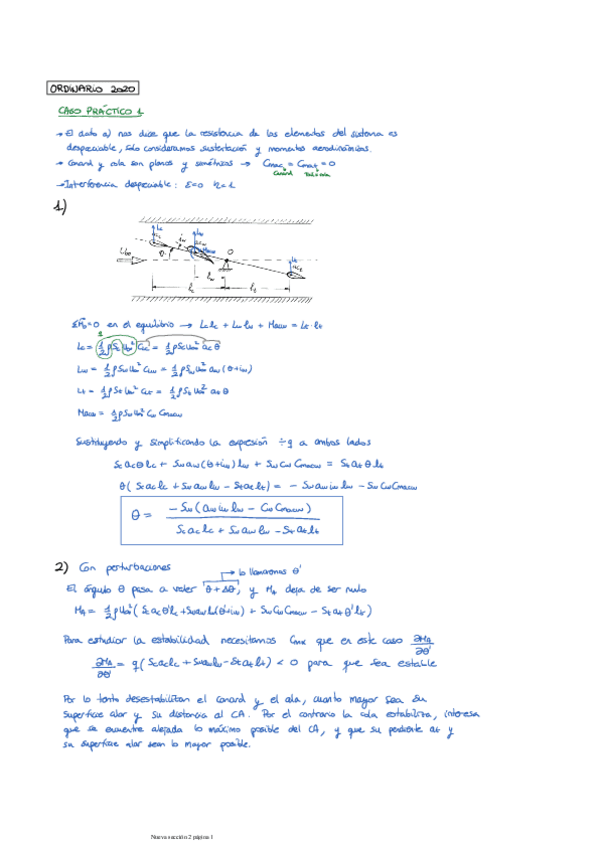 ORDINARIO 2020
CASO PRÁCTICO 1
→ El dato a) nos dice que la resistencia de los elementos del sistema es
despreciable, solo consideramos sustentación y momentos aerodinámicos.
→ Canard y cola son planos y simétricos → Cmac = Cmat = 0
Canard
→ Interferencia despreciable: ε=0 η=1
1)
Lc
Lw
iw
θ
U∞
O
Lt
lw
lc
lt
ΣM₀=0 en el equilibrio → Lc lc + Lw lw + Macw = Lt · lt
Lc = ½ρSc U∞² CLc = ½ρSc U∞² ac θ
Lw = ½ρSw U∞² CLw = ½ρSw U∞² aw (θ+iw)
Lt = ½ρSt U∞² CLt = ½ρSt U∞² at θ
Macw = ½ρSw U∞² Cw Cmacw
Sustituyendo y simplificando la expresión ÷q a ambos lados
Sc ac θ lc + Sw aw (θ+iw) lw + Sw Cw Cmacw = St at θ lt
θ (Sc ac lc + Sw aw lw − St at lt) = − Sw aw iw lw − Sw Cw Cmacw
θ = −Sw (aw iw lw − Cw Cmacw)
Sc ac lc + Sw aw lw − St at lt
2) Con perturbaciones
→ lo llamaremos θ'
El ángulo θ pasa a valer θ+Δθ, y MA deja de ser nulo
MA = ½ρU∞² (Sc ac θ' lc + Sw aw lw (θ'+iw) + Sw Cw Cmacw − St at θ' lt)
Para estudiar la estabilidad necesitamos Cmα que en este caso ∂MA/∂θ'
∂MA/∂θ' = q (Sc ac lc + Sw aw lw − St at lt) < 0 para que sea estable
Por lo tanto desestabilizan el canard y el ala, cuanto mayor sea su
superficie alar y su distancia al CA. Por el contrario la cola estabiliza, interesa
que se encuentre alejada lo máximo posible del CA, y que su pendiente at y
su superficie alar sean lo mayor posible.
Nueva sección 2 página 1